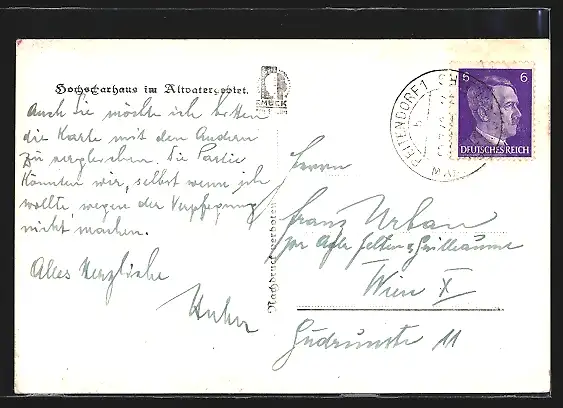 Hochscharhaus im Altvatergebiet.
Auch Sie möchte ich bitten
die Karte mit den Andern
zu vergleichen. Die Partie
könnten wir, selbst wenn ich
wollte, wegen der Verpflegung
nicht machen.
Alles Herzliche
Huber
Nachdruck verboten
6 6
DEUTSCHES REICH
Herrn
Franz Urban
Felten & Guilleaume
Wien X
Gudrunstr 11